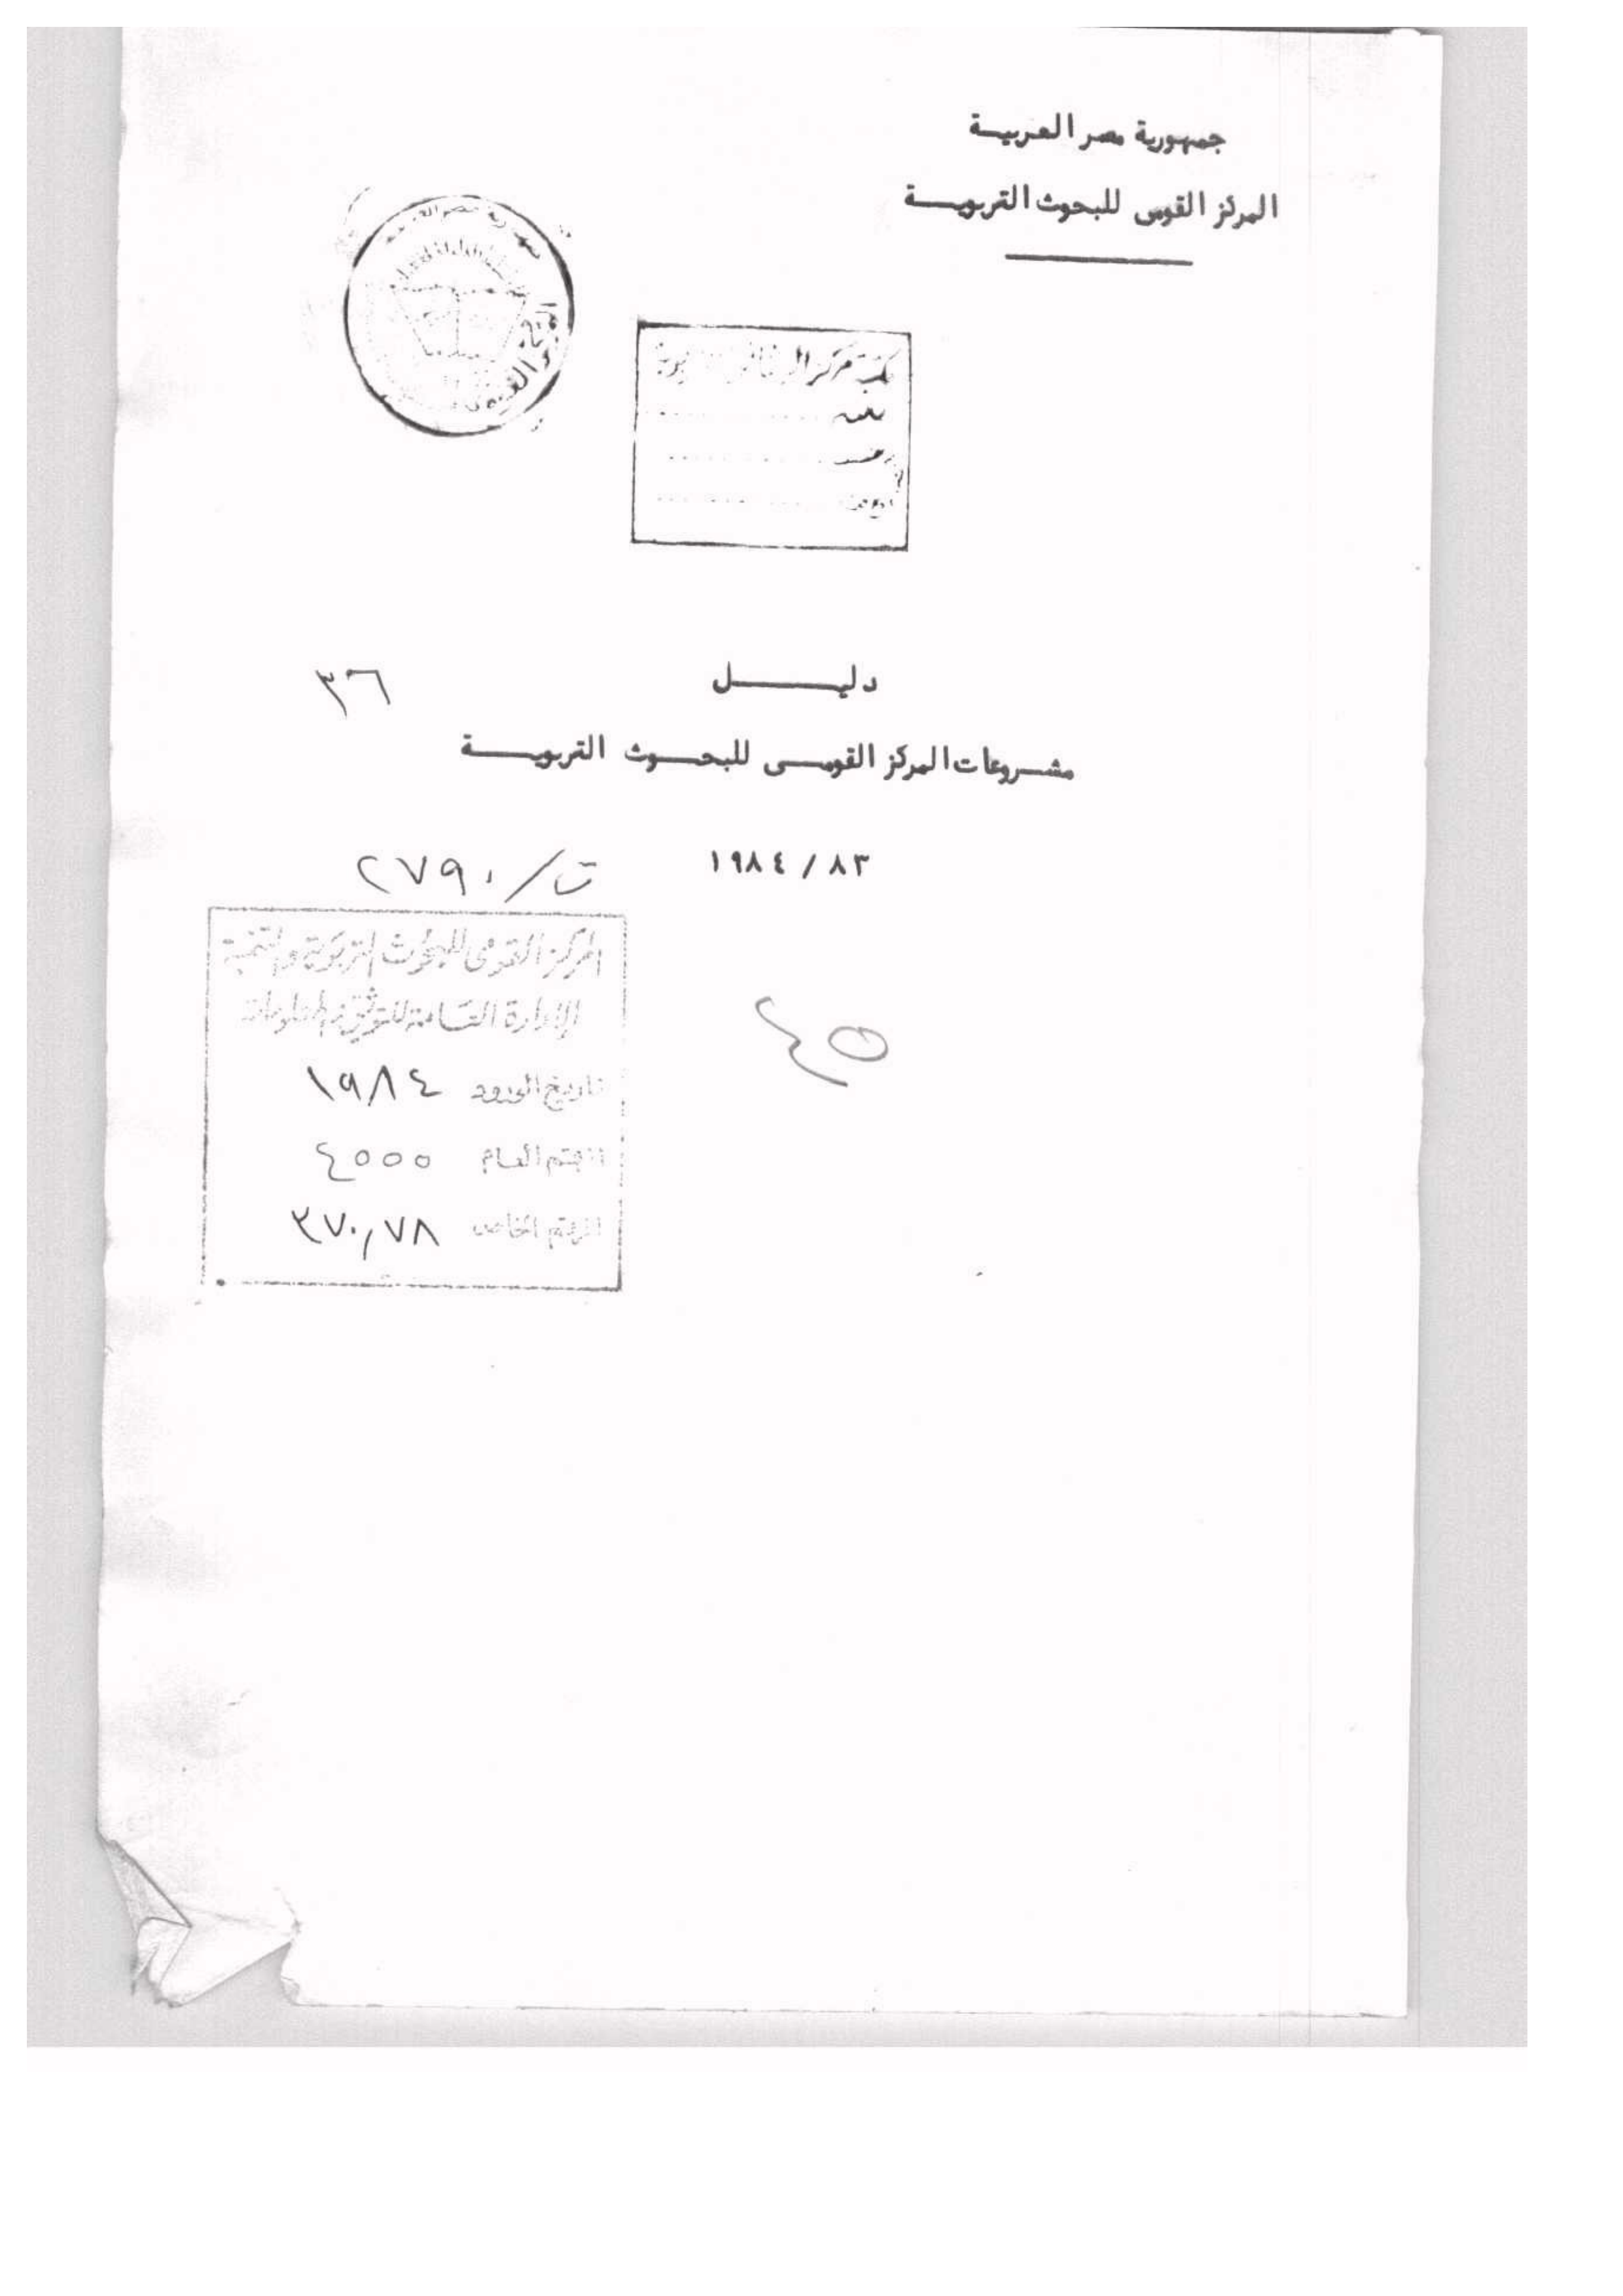 جمهورية مصر العربية
المركز القومى للبحوث التربوية
مكتبة مركز
دليل
٣٦
مشروعات المركز القومى للبحوث التربوية
٨٣ / ١٩٨٤
ت/ ٢٧٩٠
المركز القومى للبحوث التربوية والتنمية
الإدارة العامة للتوثيق والمعلومات
تاريخ الورود ١٩٨٤
الرقم العام ٤٥٥٥
الرقم الخاص ٣٧٠,٧٨
٤٥